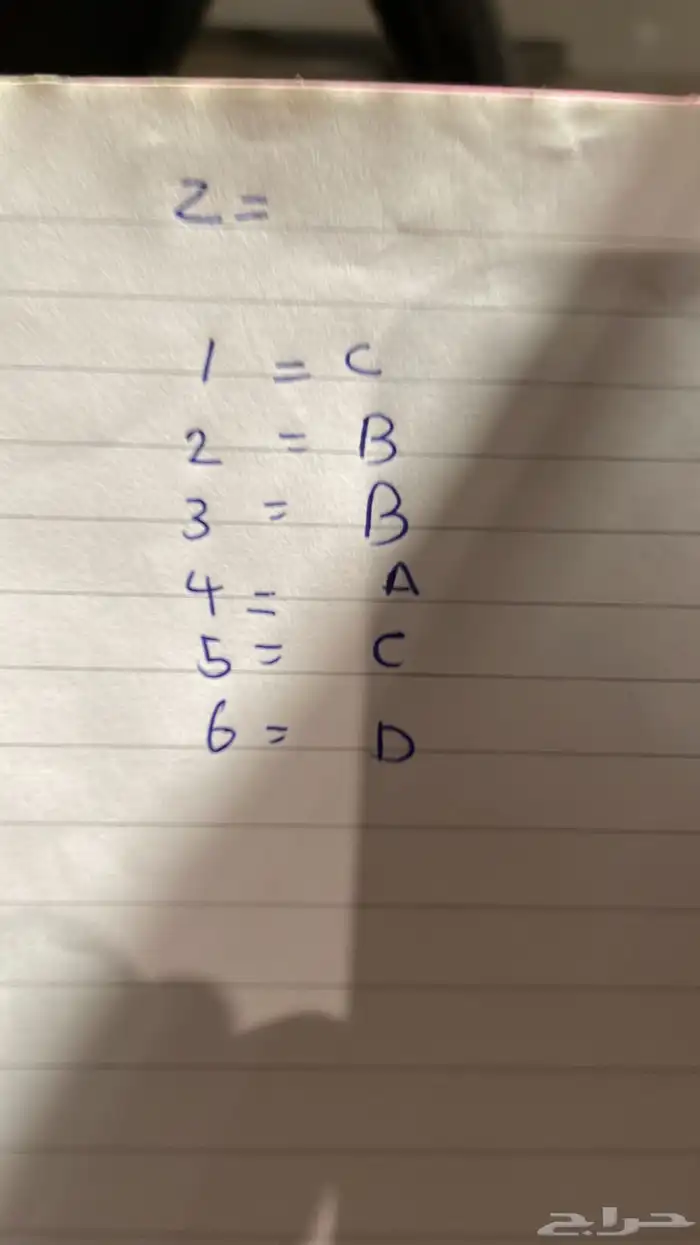 2=
1 = C
2 = B
3 = B
4 = A
5 = C
6 = D
حراج